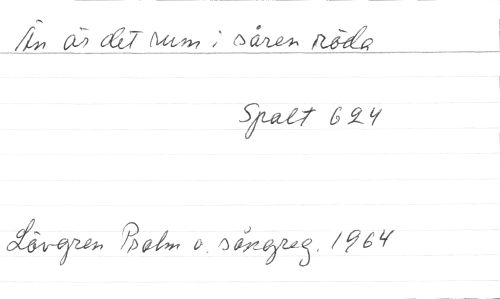 Än är det rum i såren röda
Spalt 624
Lövgren Psalm o. sångreg. 1964